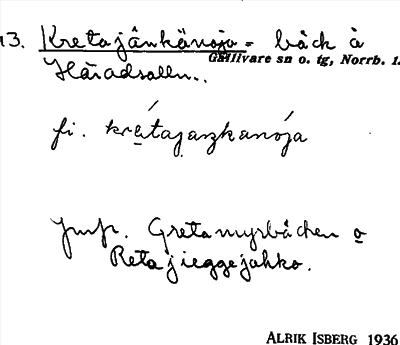 13. Kretajänkänoja = bäck å
Gällivare sn o. tg, Norrb. l.
Häradsallm..
fi. krétajaŋkanója
Jmfr. Gretamyrbäcken o
Retajieggejohko.
ALRIK ISBERG 1936